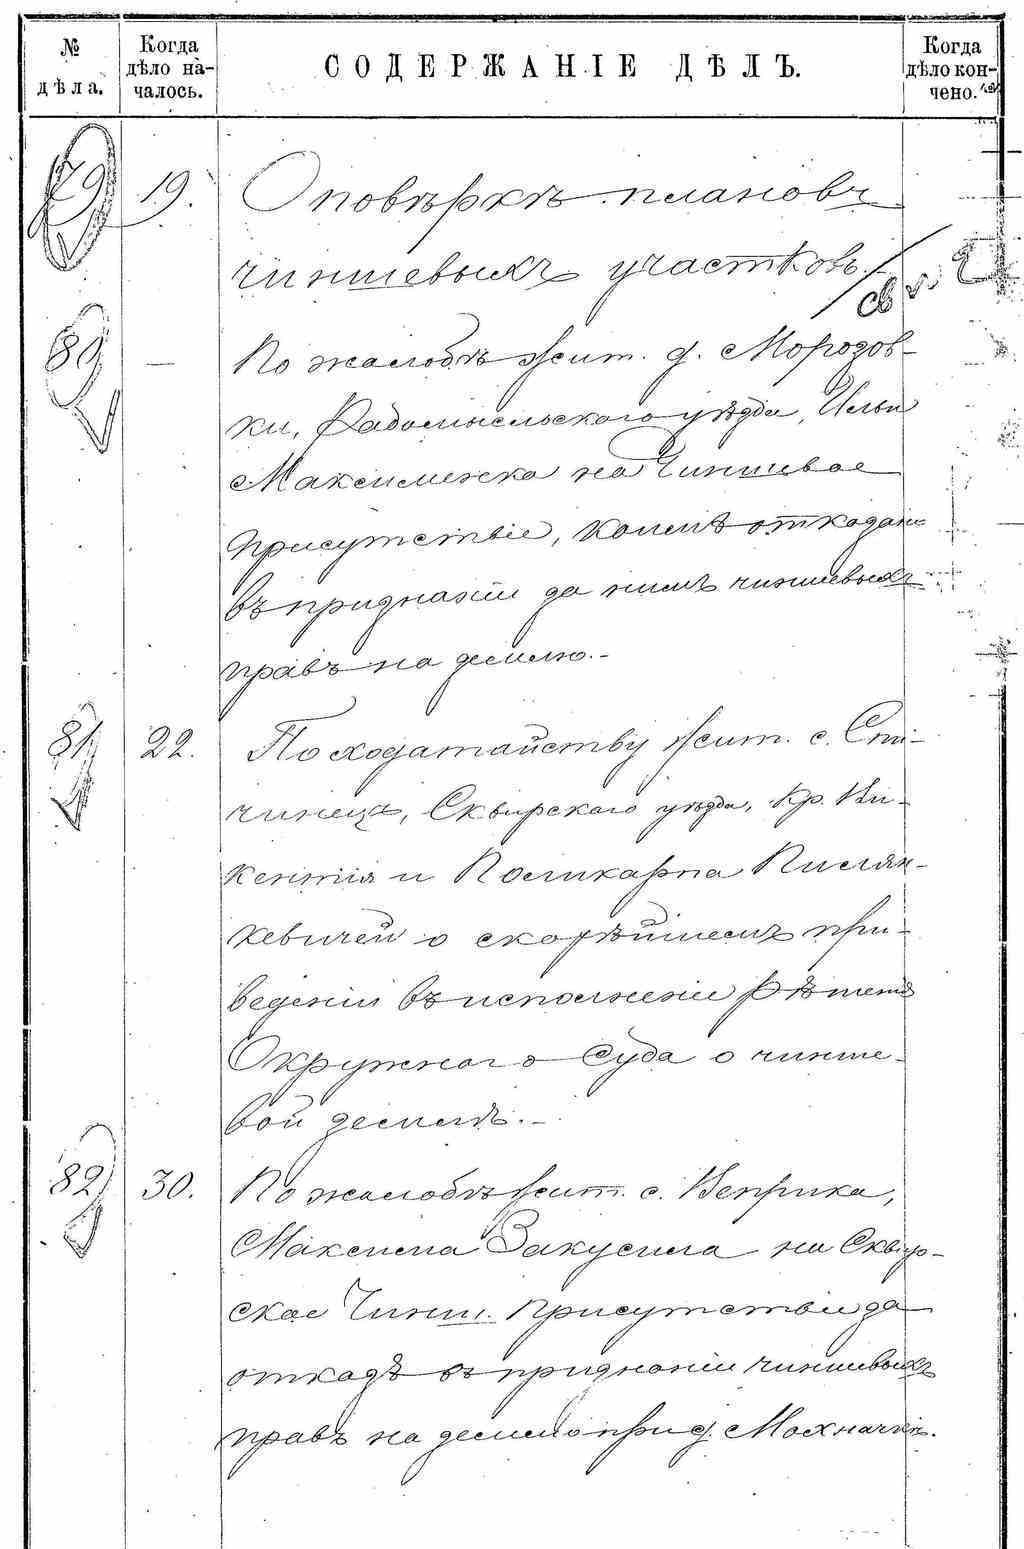 № дѣла. Когда дѣло началось. СОДЕРЖАНІЕ ДѢЛЪ. Когда дѣло кончено.
79 19. О повѣркѣ плановъ
чиншевыхъ участковъ.
св
80 — По жалобѣ жит. д. Морозов-
ки, Радомысльского уѣзда, Ильи
Максименка на Чиншевое
присутствіе, коимъ отказано
въ признаніи за нимъ чиншевыхъ
правъ на землю.-
81. 22. По ходатайству жит. с. Спи-
чинецъ, Сквирского уѣзда, Кр. Ви-
кентія и Поликарпа Пислян-
кевичей о скорѣйшемъ при-
веденіи въ исполненіе рѣшенія
Окружного Суда о чинше-
вой землѣ.-
82 30. По жалобѣ жит. с. Веприка,
Максима Закусила на Сквир-
ское Чинш. Присутствіе за
отказъ въ признаніи чиншевыхъ
правъ на землю при д. Мохначкѣ.